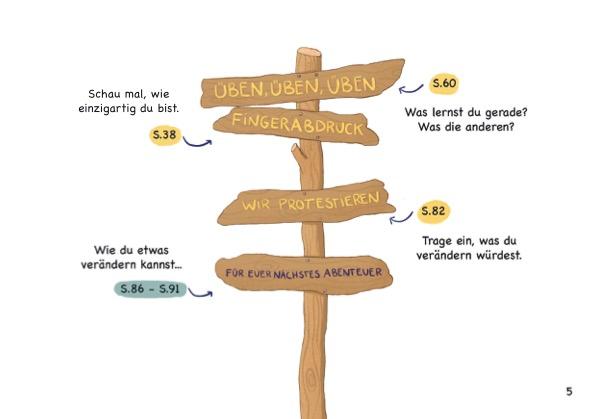 ÜBEN, ÜBEN, ÜBEN
S.60
Schau mal, wie
einzigartig du bist.
Was lernst du gerade?
Was die anderen?
FINGERABDRUCK
S.38
WIR PROTESTIEREN
S.82
Trage ein, was du
verändern würdest.
Wie du etwas
verändern kannst...
FÜR EUER NÄCHSTES ABENTEUER
S.86 – S.91
5